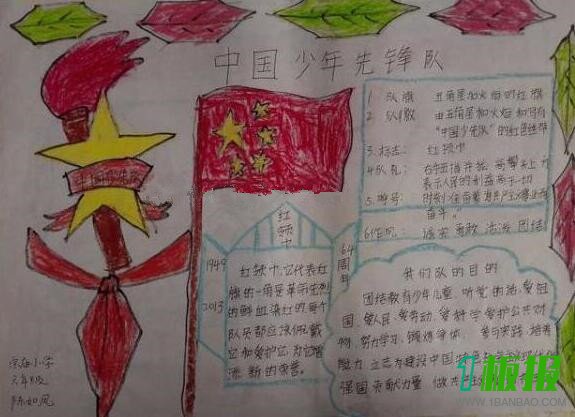 中国少年先锋队
1 队旗 五角星加火炬的红旗
2 队徽 由五角星和火炬和写有
"中国少先队"的红色绶带
3.标志: 红领巾
4.队礼: 右手五指并拢 高举头上
表示人民的利益高于一切
5.呼号:
奋斗。
6.作风: 诚实 勇敢 活泼 团结
中国少先队
红领巾
1949
2013
64周年
红领巾,它代表红
旗的一角是革命先烈
的鲜血染红的,每个
队员都应该佩戴
它和爱护它,为它增
添新的荣誉。
我们队的目的
团结教育少年儿童,听党的话,爱祖
国、爱人民、爱劳动、爱科学、爱护公共财
物,努力学习,锻炼身体,参与实践,培养
能力,立志为建设中国特色社会主义现代化
强国贡献力量 做共产主义
小学
六年级
板报
WWW.1BANBAO.COM